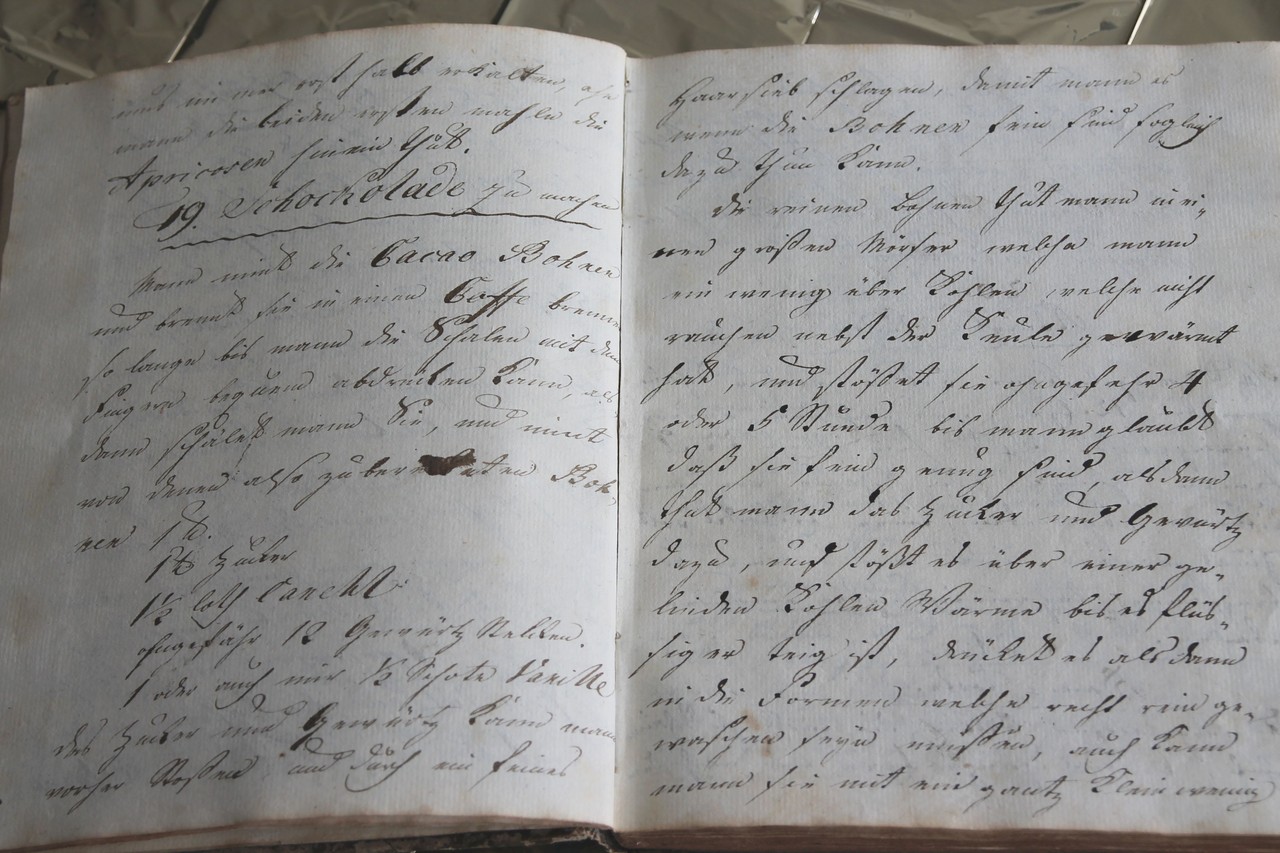 und nur erst halb erkalten, ehe
mann die beiden ersten mahle die
Apricosen hinein thut.
19. Schockolade zu machen
Mann nimt die Cacao Bohnen
und brennt sie in einen Coffe brenner
so lange bis mann die Schalen mit den
Fingern bequem abdrucken kann, als
dann schälet mann Sie, und nimt
von denen also zubereiteten Boh-
nen 1 ℔.
1 ℔ Zucker
1½ loth Canehl
ohngefähr 12 Gewürtz Nelken.
1 oder auch nur ½ Schote Vanille
des Zucker und Gewürtz kann mann
vorher Stoßen und durch ein feines
Haarsieb schlagen, damit mann es
wenn die Bohnen fein sind sogleich
dazu thun kann.
Die reinen Bohnen thut mann in ei-
nen großen Mörser welche mann
ein wenig über Kohlen welche nicht
rauchen nebst der Keule gewärmt
hat, und stößet sie ohngefehr 4
oder 5 Stunde bis mann glaubt
daß sie fein genug sind, alsdann
thut mann das Zucker und Gewürtz
dazu, und stößt es über einer ge-
linden Kohlen Wärme bis es flüs-
siger teig ist, drücket es alsdann
in die Formen welche recht rein ge-
waschen seyn müssen, auch kann
mann sie mit ein gantz klein wenig